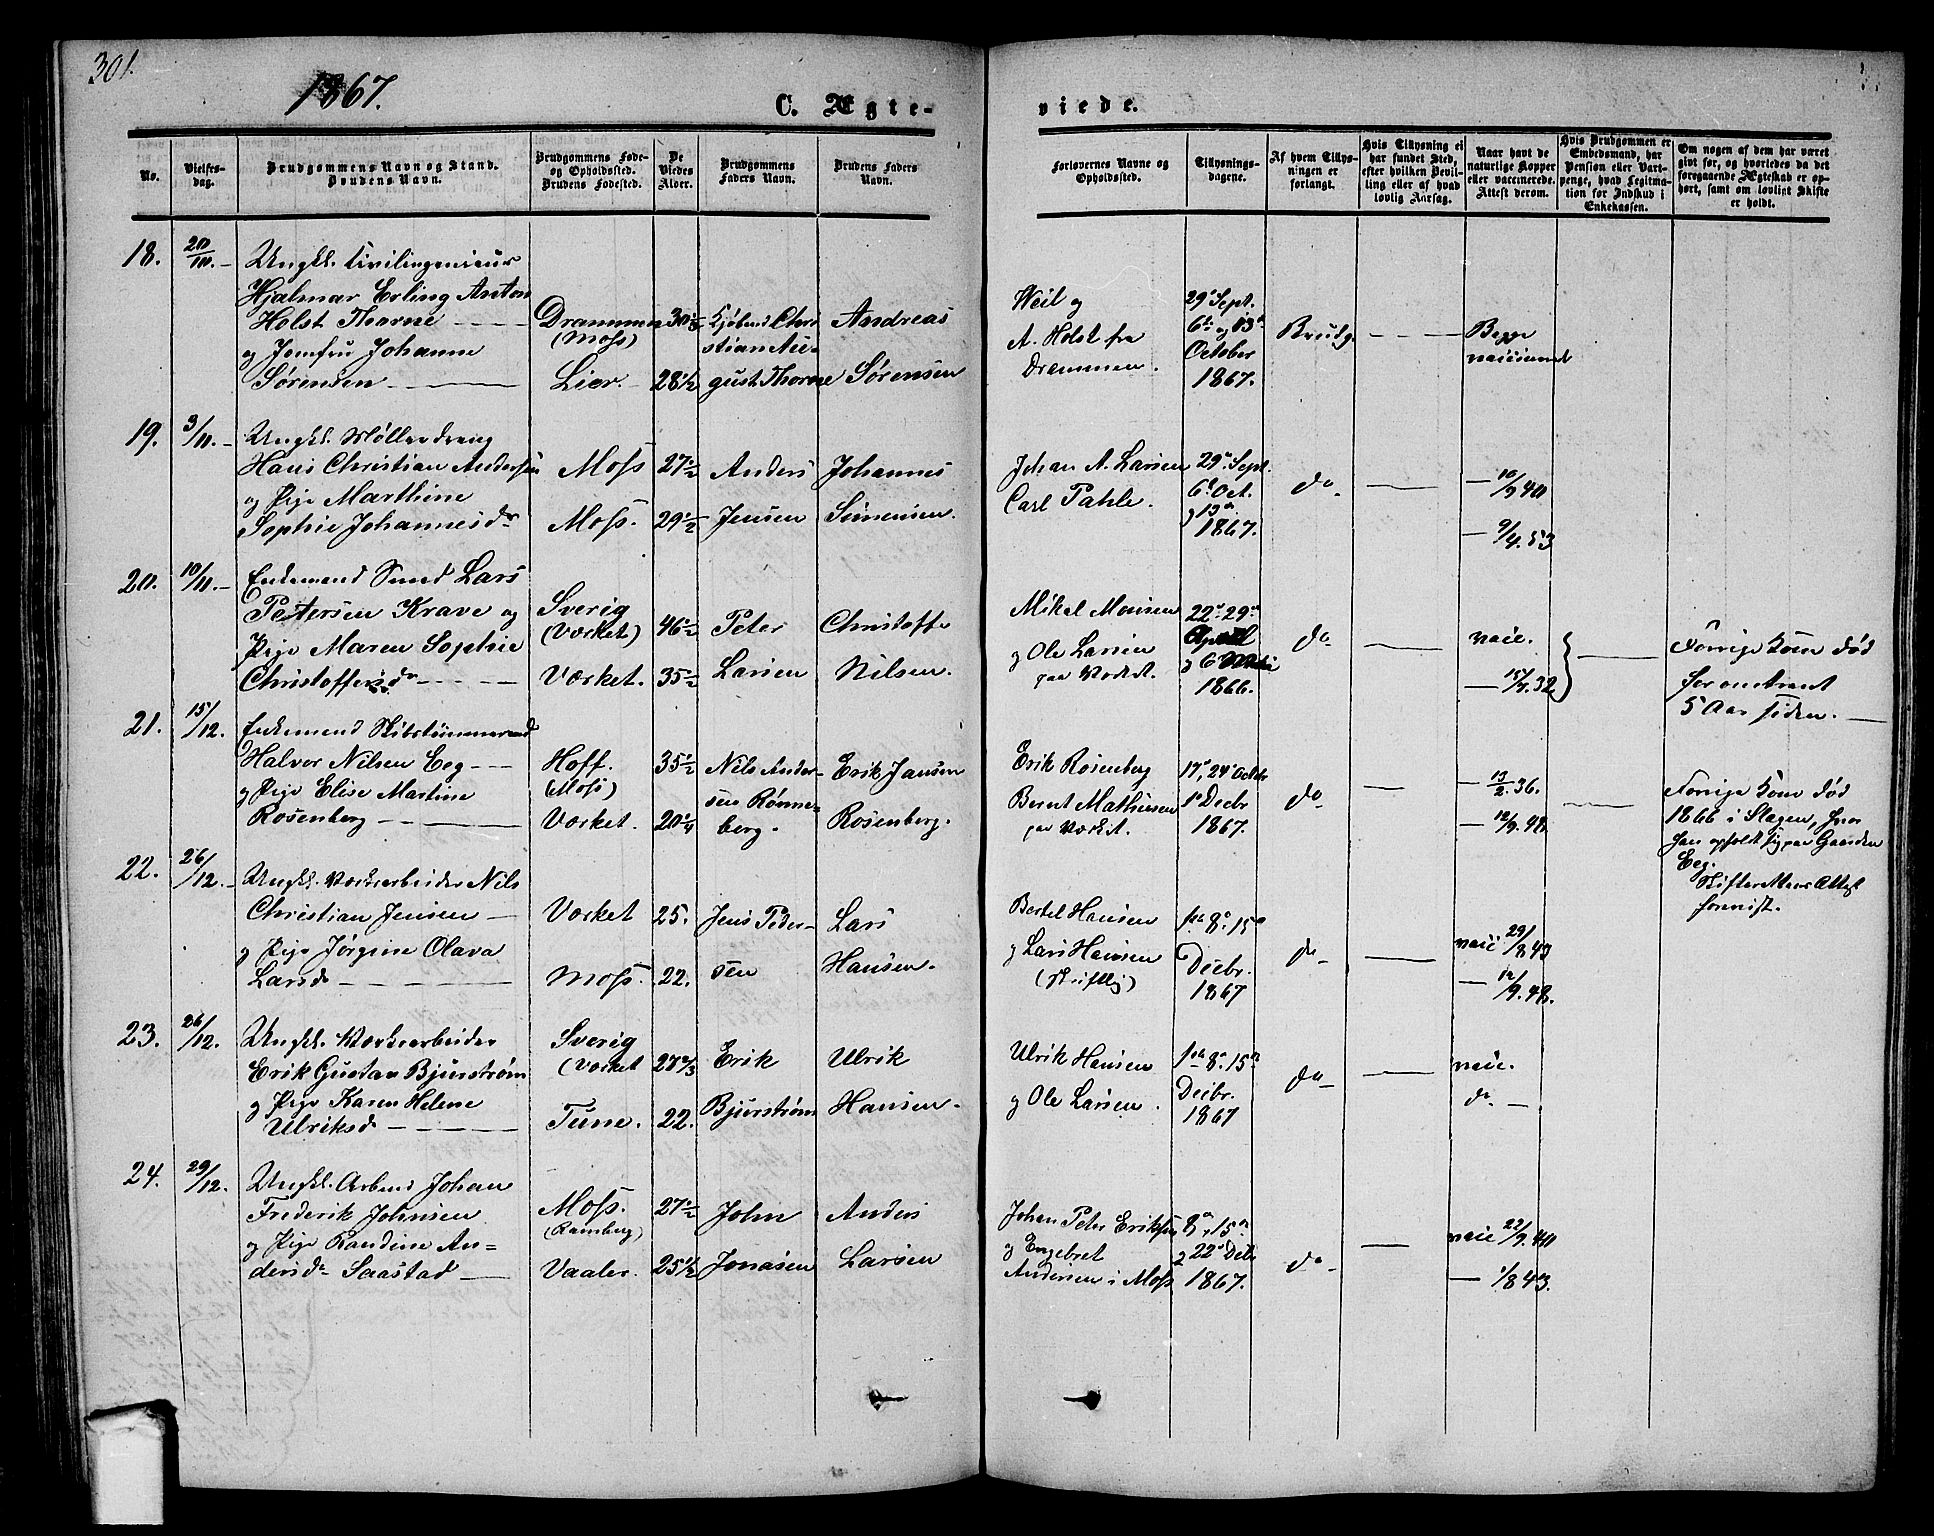 301.
1867.
C. Ægte-
viede.
No.
Vielses-
dag.
Brudgommens Navn og Stand.
Brudens Navn.
Brudgommens Føde-
og Opholdssted.
Brudens Fødested.
De
Viedes
Alder.
Brudgommens
Faders Navn.
Brudens Faders
Navn.
Forlovernes Navne og
Opholdssted.
Tillysnings-
dagene.
Af hvem Tillys-
ningen er
forlangt.
Hvis Tillysning ei
har fundet Sted,
efter hvilken Bevil-
ling eller af hvad
lovlig Aarsag.
Naar havt de
naturlige Kopper
eller vaccinerede.
Attest derom.
Hvis Brudgommen er
Embedsmand, har
Pension eller Vart-
penge, hvad Legitima-
tion for Indskud i
Enkekassen.
Om nogen af dem har været
gift før, og hvorledes da det
foregaaende Ægteskab er op-
hørt, samt om lovligt Skifte
er holdt.
18.
20/10.
Ungkl. Civilingenieur
Hjalmar Erling Anton
Holst Thorne
og Jomfru Johanne
Sørensen
Drammen
(Moss)
Lier.
28 1/2
Christian Au-
gust Thorne
Andreas
Sørensen
Weil og
A. Holst fra
Drammen.
29' Sept.
6te og 13de
October
1867.
Brudg.
Begge
vaccineret
19.
3/11.
Ungkl. Møllerdreng
Hans Christian Andersen
og Pige Marthine
Sophie Johannesdr
Moss
Moss.
27 1/2
29 1/2
Anders
Jensen
Johannes
Simensen.
Johan A. Larsen
Carl Pahle.
29' Sept.
6' Oct.
og 13de
1867.
do
10/9 40
9/4. 53
20.
10/11.
Enkemand Smed Lars
Pettersen Krave og
Pige Maren Sophie
Christoffersdr
Sverig
(Værket)
Værket.
46 1/2
35 1/2
Peter
Larsen
Christoffer
Nilsen.
Mikal Monsen
og Ole Larsen
paa Værket.
22' 29de
April
og 6' Mai
1866.
do
vacc.
15/7. 32
Forrige Kone død
for omtrent
5 Aar siden.
21.
15/12.
Enkemand Skibstømmermand
Halvor Nilsen Eeg
og Pige Elise Martine
Rosenberg
Hoff.
(Moss)
Værket.
35 1/2
20 1/4
Nils Ander-
sen Rønne-
berg.
Erik Jansen
Rosenberg.
Erik Rosenberg
Bernt Mathiesen
paa Værket.
17', 24' Octbr
1' Decbr
1867.
do
13/2. 36.
12/9. 48
Forrige Kone død
1866 i Slagen, hvor
han opholdt sig paa Gaarden
Eeg.
Skifterettens Attest
forevist.
22.
26/12.
Ungkl. Værksarbeider Nils
Christian Jensen
og Pige Jørgine Olava
Larsd
Værket
Moss.
25.
22.
Jens Peder-
sen
Lars
Hansen.
Bertel Hansen
og Lars Hansen
(skriftlig)
1ste 8', 15de
Decbr.
1867
do
vacc 29/8 43
12/9. 48.
23.
26/12.
Ungkl. Værksarbeider
Erik Gustav Bjurstrøm
og Pige Karen Helene
Ulriksd
Sverig
(Værket
Tune.
22.
Erik
Bjurstrøm
Ulrik
Hansen.
Ulrik Hansen
og Ole Larsen.
1ste 8', 15de
Decbr.
1867
do
vacc.
do
24.
29/12.
Ungkl. Arbmd Johan
Frederik Johnsen
og Pige Randine An-
dersdr Saastad
Moss.
(Ramberg)
Vaaler.
27 1/2
25 1/2
John
Jonasen
Anders
Larsen
Johan Peter Eriksen
og Engebret
Andersen i Moss
8', 15de
og 22' Decbr
1867.
do
vacc 22/9. 40
1/8 43.